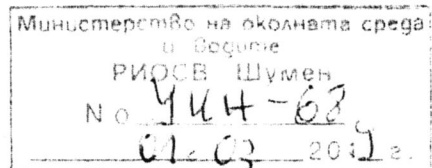 Министерство на околната среда
и водите
РИОСВ Шумен
No УИН-68
01.02 201 г.